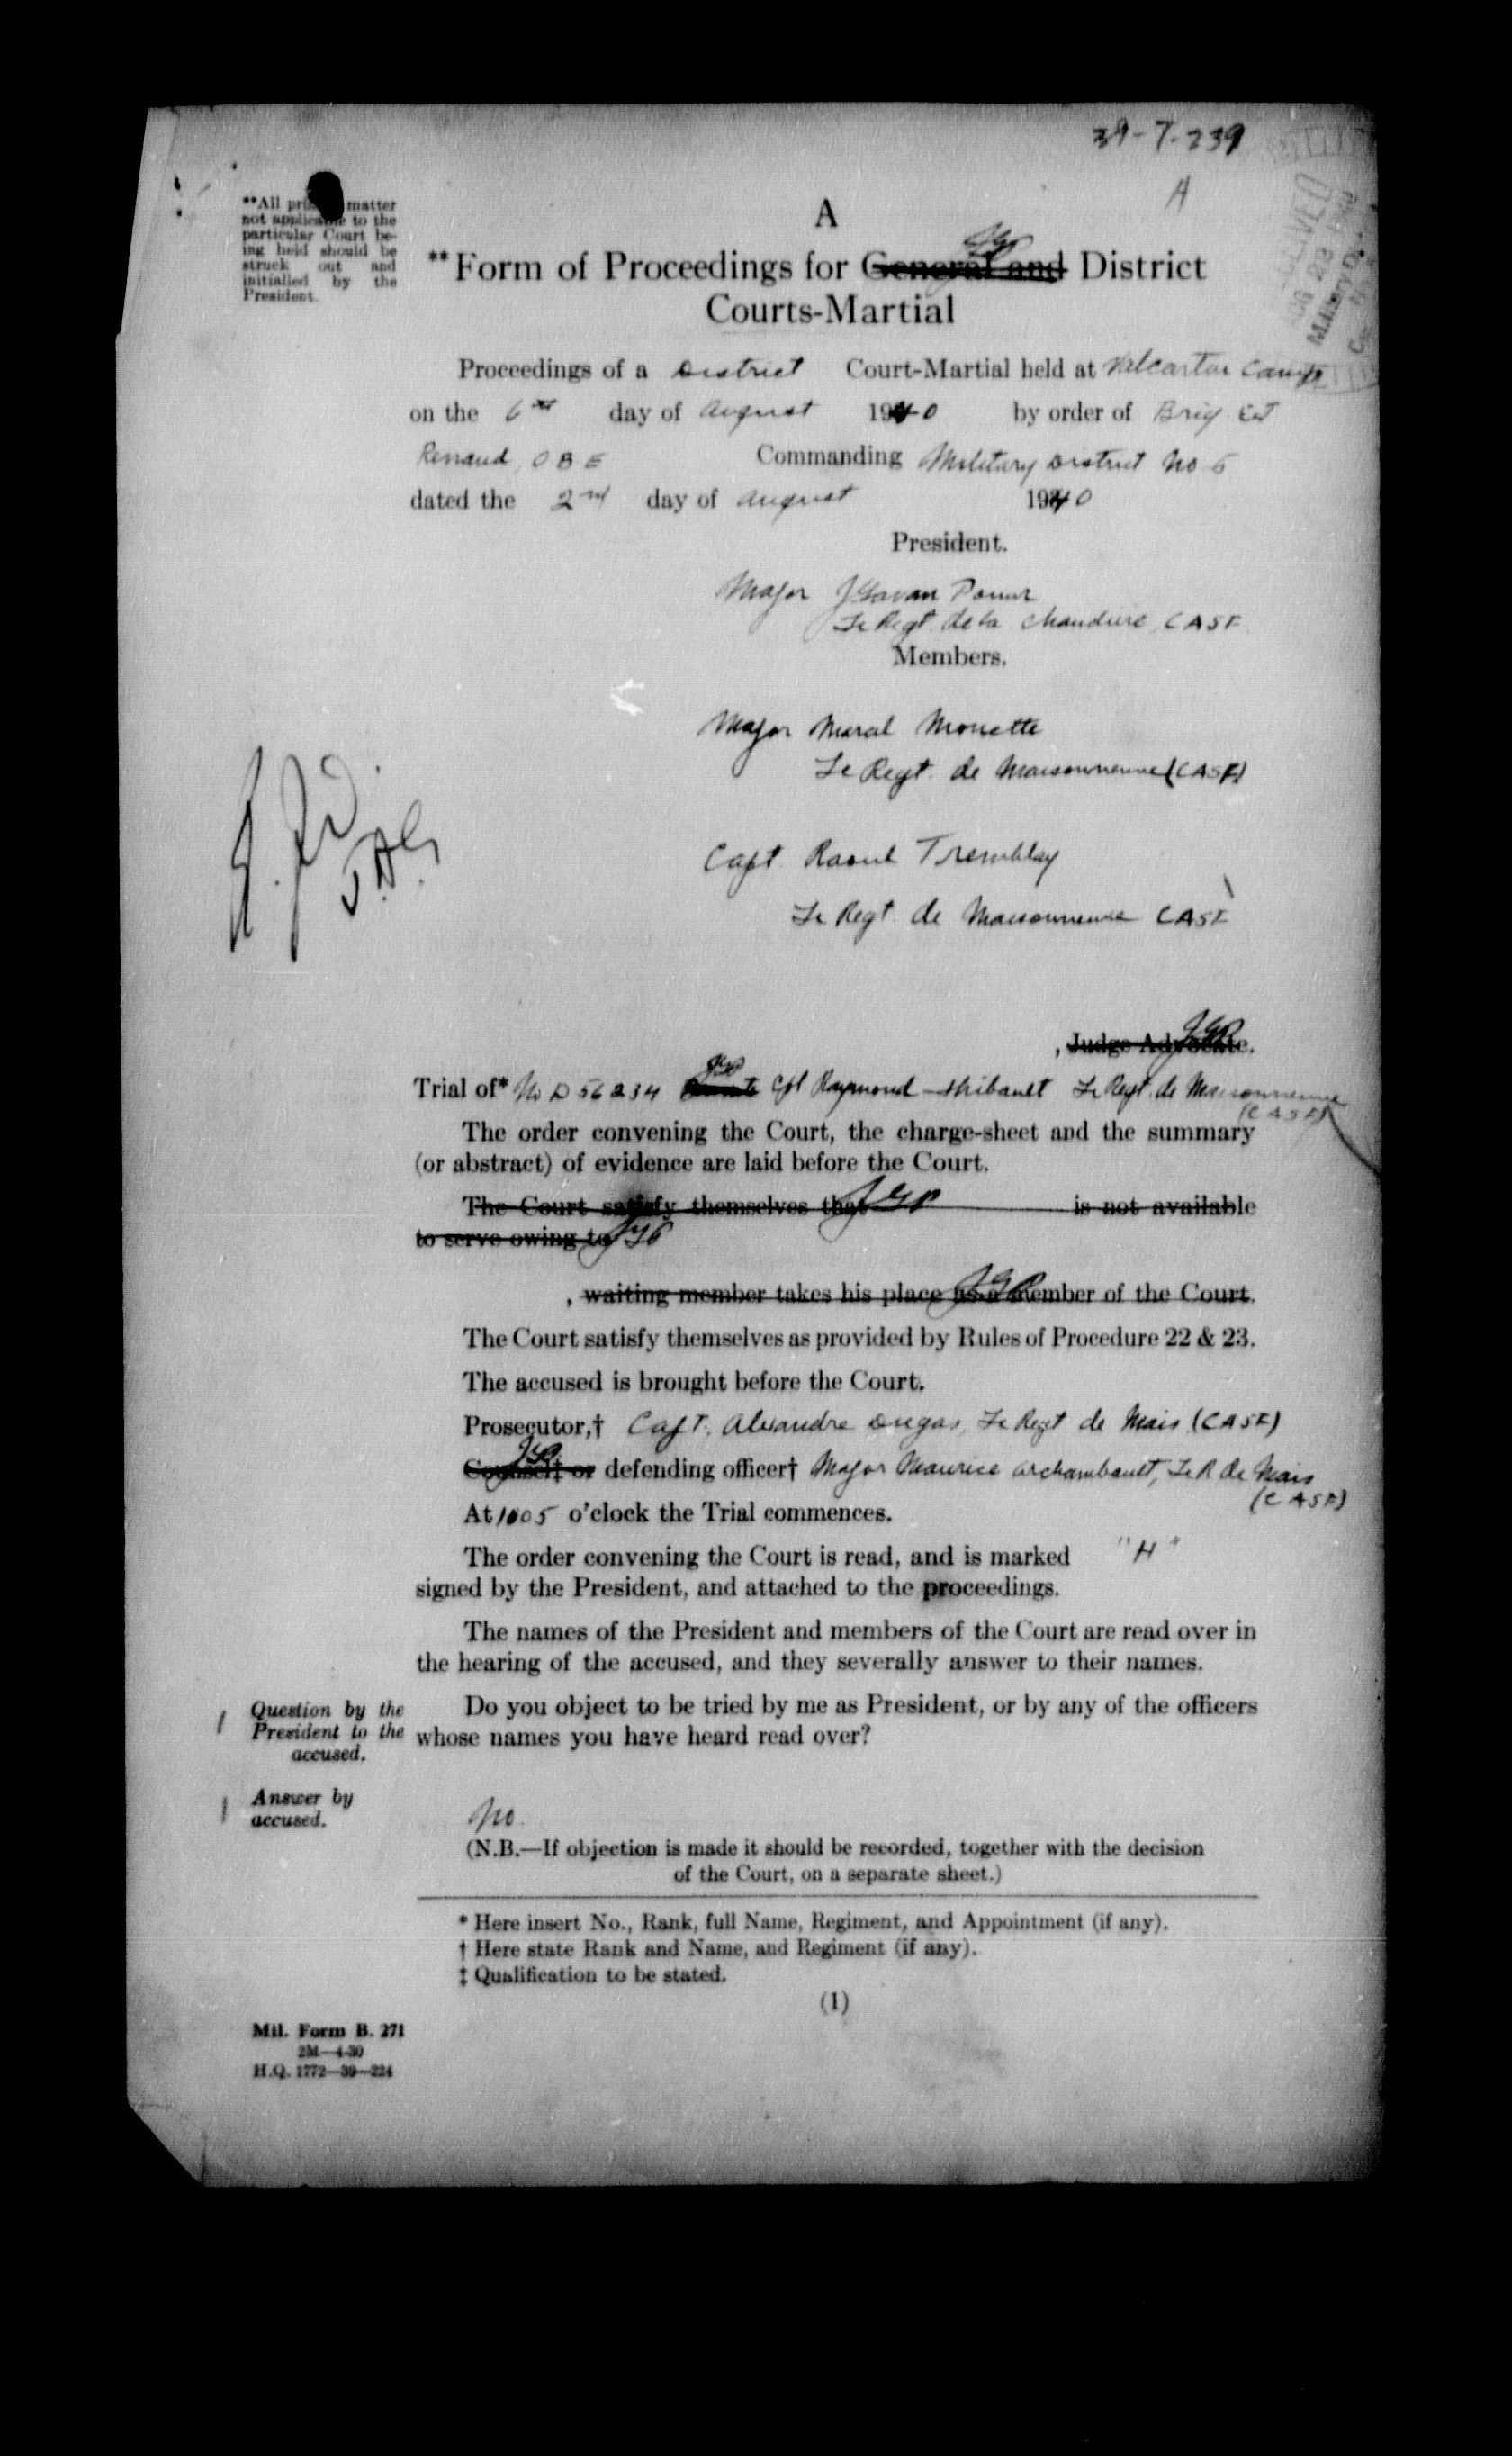 39-7-239
A
**All printed matter
not applicable to the
particular Court be-
ing held should be
struck out and
initialled by the
President.
A
**Form of Proceedings for General and District
Courts-Martial
Proceedings of a District Court-Martial held at Valcartier Camp
on the 6th day of August 1940 by order of Brig. E J
Renaud, O B E Commanding Military District No 5
dated the 2nd day of August 1940
President.
Major J Gavan Power
Le Regt. de la Chaudiere, CASF
Members.
Major Marcel Monette
Le Regt. de Maisonneuve (CASF)
Capt Raoul Tremblay
Le Regt. de Maisonneuve CASF
, Judge Advocate.
JGP
Trial of* No D 56234 Cpl Raymond Thibault Le Regt. de Maisonneuve
(CASF)
The order convening the Court, the charge-sheet and the summary
(or abstract) of evidence are laid before the Court.
The Court satisfy themselves that JGP is not available
to serve owing to JGP
, waiting member takes his place as a member of the Court.
The Court satisfy themselves as provided by Rules of Procedure 22 & 23.
The accused is brought before the Court.
Prosecutor,† Capt. Alexandre Dugas, Le Regt de Mais (CASF)
Counsel‡ or defending officer† Major Maurice Archambault, Le R de Mais
(CASF)
At 1005 o'clock the Trial commences.
The order convening the Court is read, and is marked "H"
signed by the President, and attached to the proceedings.
The names of the President and members of the Court are read over in
the hearing of the accused, and they severally answer to their names.
Question by the
President to the
accused.
Do you object to be tried by me as President, or by any of the officers
whose names you have heard read over?
Answer by
accused.
No.
(N.B.—If objection is made it should be recorded, together with the decision
of the Court, on a separate sheet.)
* Here insert No., Rank, full Name, Regiment, and Appointment (if any).
† Here state Rank and Name, and Regiment (if any).
‡ Qualification to be stated.
(1)
Mil. Form B. 271
2M—4-30
H.Q. 1772—39—224